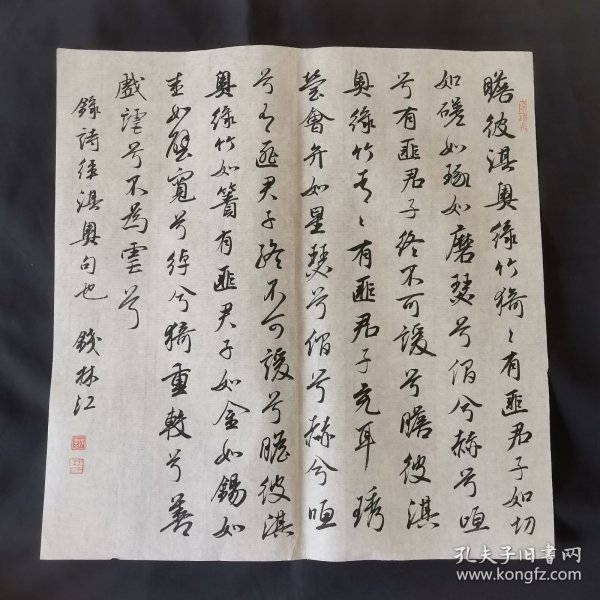 瞻彼淇奥緑竹猗〻有匪君子如切
如磋如琢如磨瑟兮僩兮赫兮咺
兮有匪君子終不可諼兮瞻彼淇
奥緑竹青〻有匪君子充耳琇
瑩會弁如星瑟兮僩兮赫兮咺
兮有匪君子終不可諼兮瞻彼淇
奥緑竹如簀有匪君子如金如錫如
圭如璧寬兮綽兮猗重較兮善
戲謔兮不為虐兮
録詩經淇奥句也 錢林江
孔夫子旧書网
www.kongfz.com